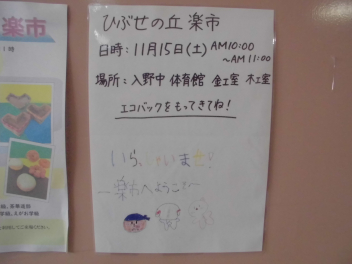 ひぶせの丘 楽市
日時：11月15日(土) AM10:00
～AM11:00
場所：入野中 体育館 金工室 木工室
エコバックをもってきてね！
いらっしゃいませ！
～楽市へようこそ～
楽市